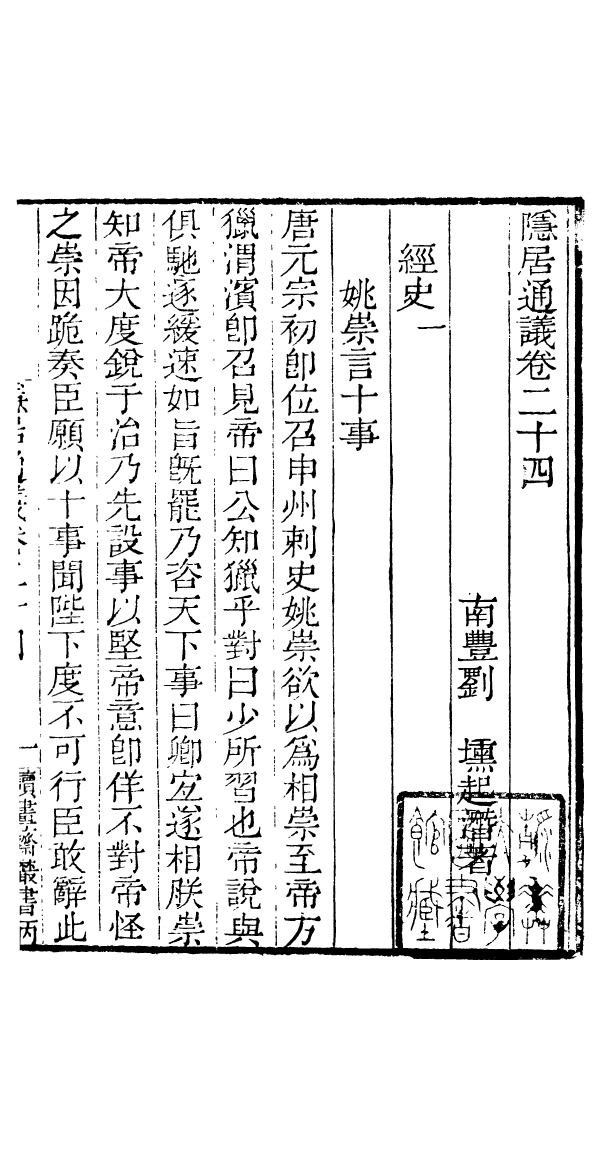 隱居通議卷二十四
南豐劉　壎起潛著
經史一
姚崇言十事
唐元宗初卽位召申州刺史姚崇欲以爲相崇至帝方
獵渭濱卽召見帝曰公知獵乎對曰少所習也帝說與
俱馳逐緩速如旨旣罷乃咨天下事曰卿宐遂相朕崇
知帝大度銳于治乃先設事以堅帝意卽佯不對帝怪
之崇因跪奏臣願以十事聞陛下度不可行臣敢辭此
一 讀畫齋叢書丙